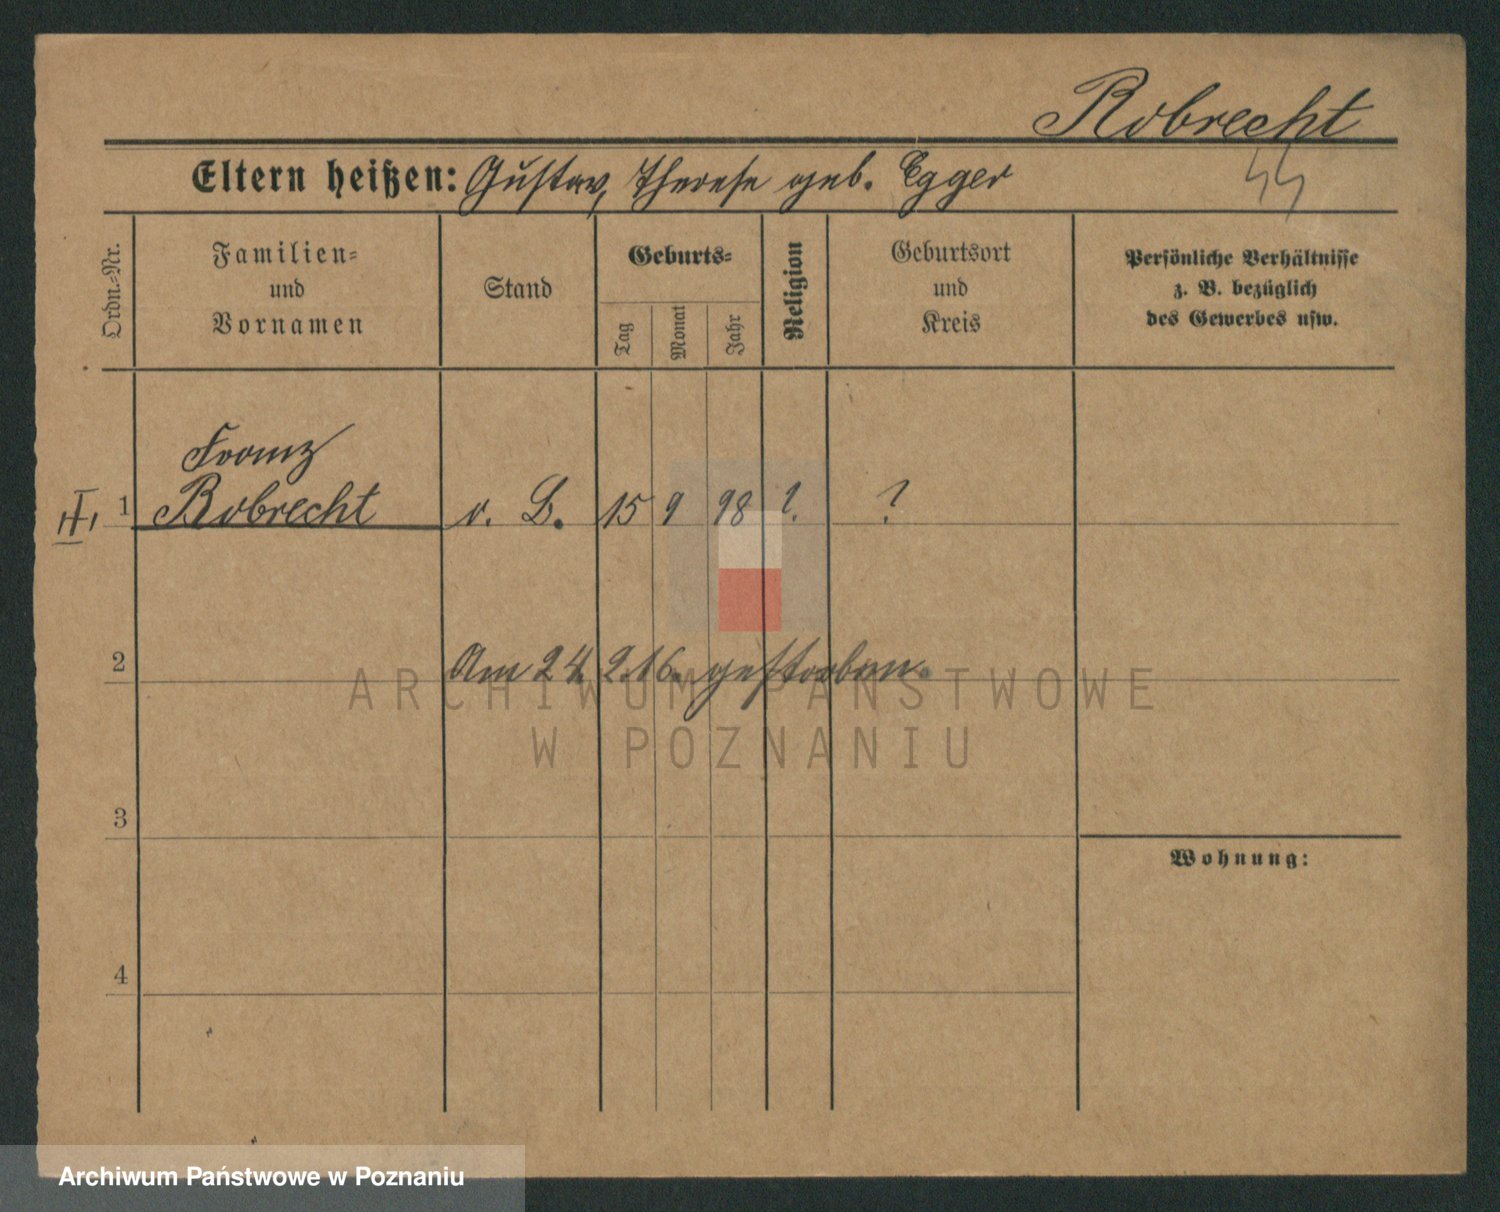 Robrecht
Eltern heißen: Gustav, Therese geb. Egger
Ordn.=Nr.
Familien=
und
Vornamen
Stand
Geburts=
Tag
Monat
Jahr
Religion
Geburtsort
und
Kreis
Persönliche Verhältnisse
z. B. bezüglich
des Gewerbes usw.
Franz
1 Robrecht o. B. 15 9 98 ? ?
2 Am 24. 2.16. gestorben.
ARCHIWUM PAŃSTWOWE
W POZNANIU
3
Wohnung:
4
Archiwum Państwowe w Poznaniu